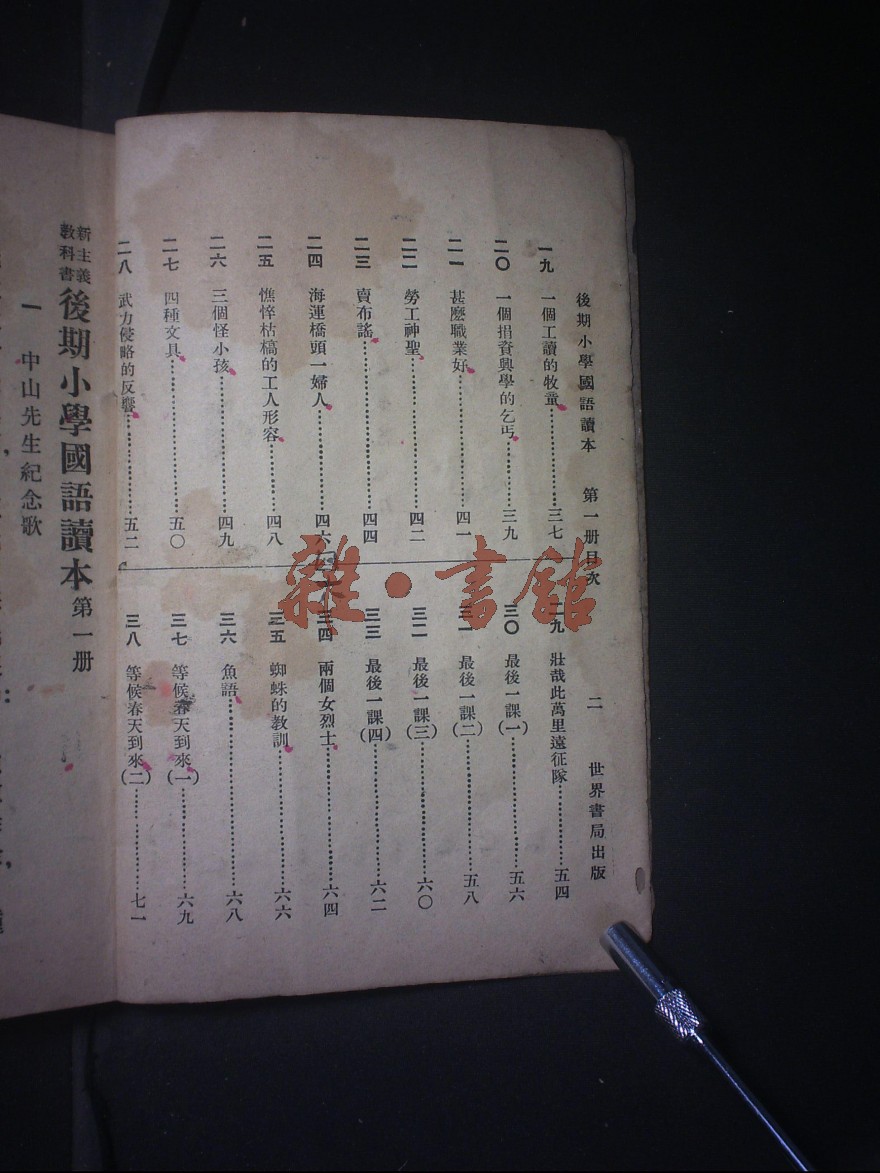 後期小學國語讀本 第一册目次 二 世界書局出版
一九 一個工讀的牧童………三七
二〇 一個捐資興學的乞丐………三九
二一 甚麼職業好………四一
二二 勞工神聖………四二
二三 賣布謠………四四
二四 海運橋頭一婦人………四六
二五 憔悴枯槁的工人形容………四八
二六 三個怪小孩………四九
二七 四種文具………五〇
二八 武力侵略的反響………五二
二九 壯哉此萬里遠征隊………五四
三〇 最後一課(一)………五六
三一 最後一課(二)………五八
三二 最後一課(三)………六〇
三三 最後一課(四)………六二
三四 兩個女烈士………六四
三五 蜘蛛的教訓………六六
三六 魚語………六八
三七 等候春天到來(一)………六九
三八 等候春天到來(二)………七一
新主義教科書 後期小學國語讀本 第一册
一 中山先生紀念歌
雜·書館